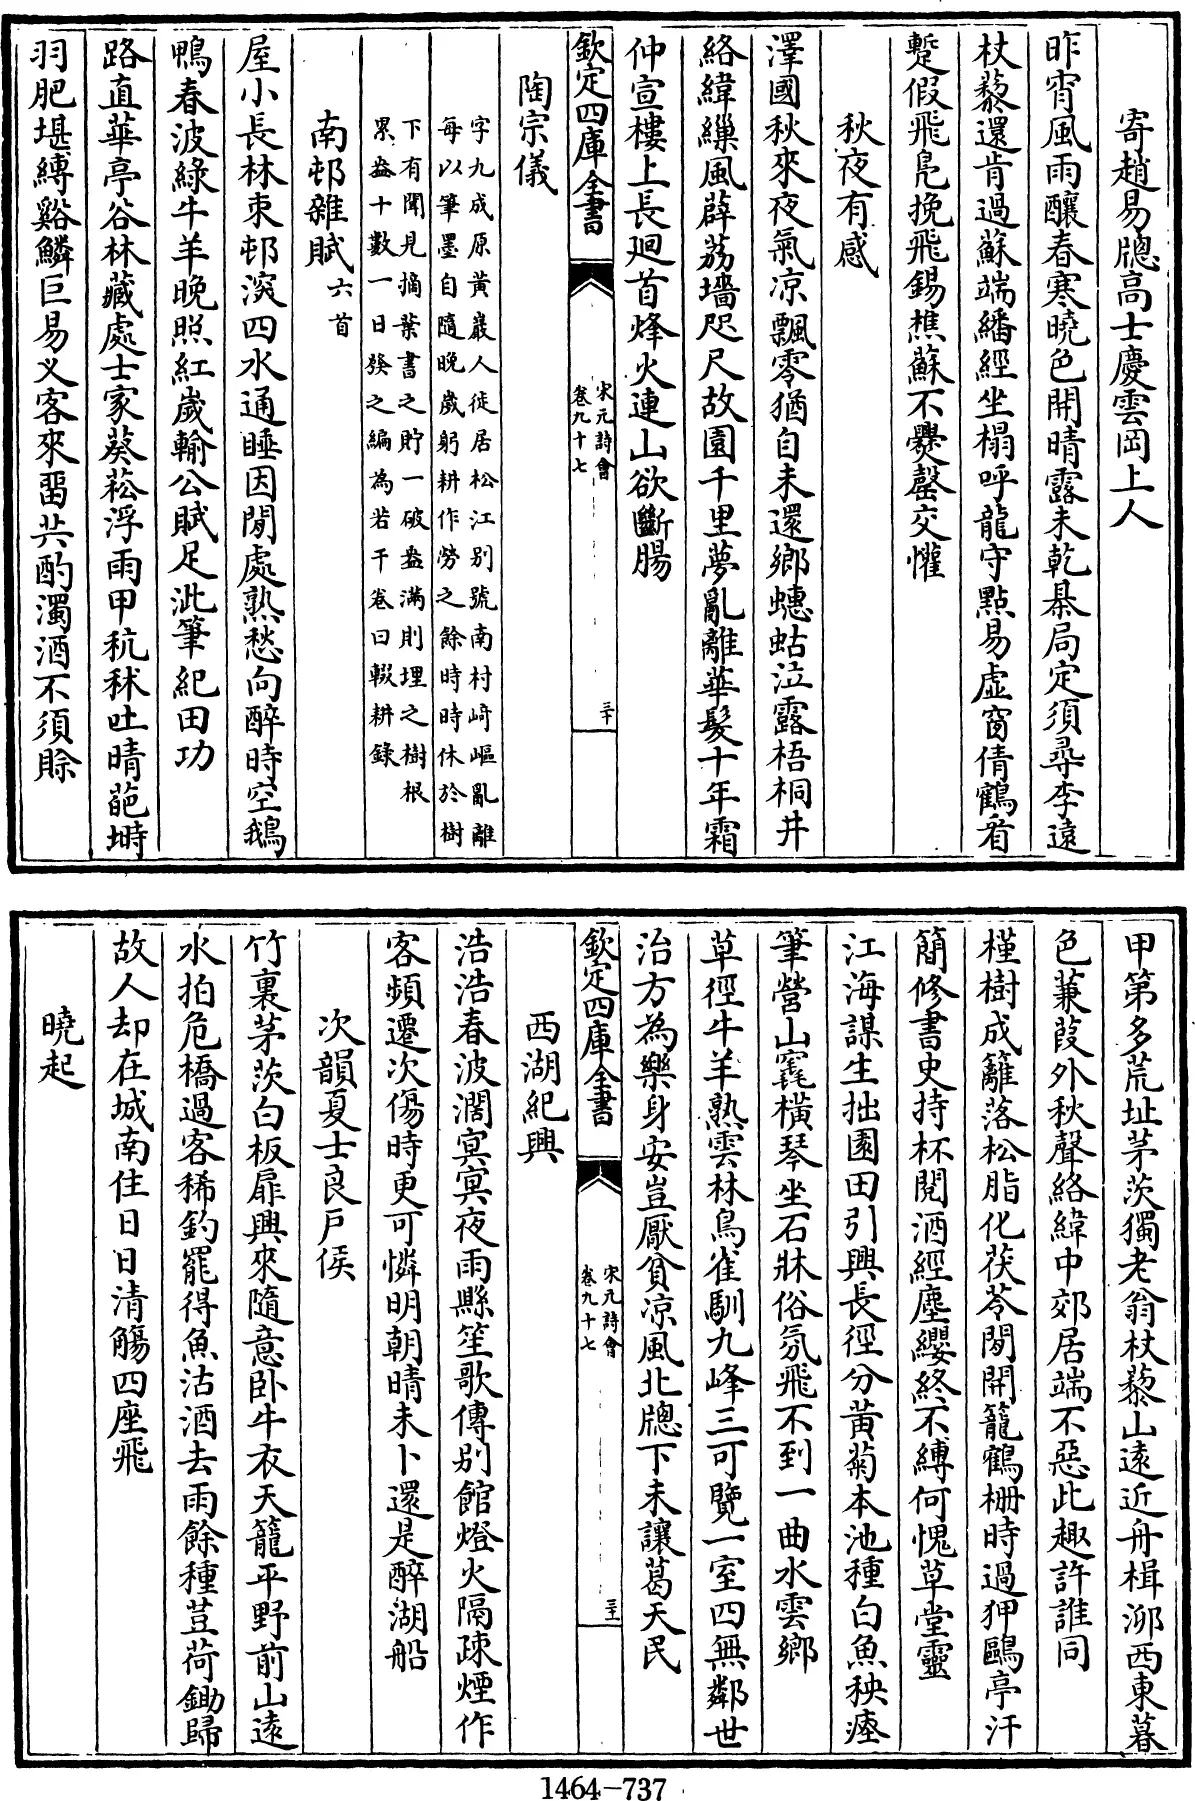 寄趙易牕高士慶雲岡上人
昨宵風雨釀春寒曉色開晴露未乾棊局定須尋李遠
杖藜還肯過蘇端繙經坐榻呼龍守點易虛窗倩鶴看
蹔假飛鳧挽飛錫樵蘇不爨罄交懽
秋夜有感
澤國秋來夜氣凉飄零猶自未還鄉蟪蛄泣露梧桐井
絡緯繅風薜荔墻咫尺故園千里夢亂離華髮十年霜
仲宣樓上長廻首烽火連山欲斷腸
欽定四庫全書
宋元詩會
卷九十七
三十
陶宗儀
字九成原黃巖人徙居松江别號南村﨑嶇亂離
每以筆墨自隨晚歲躬耕作勞之餘時時休於樹
下有聞見摘葉書之貯一破盎滿則埋之樹根
累盎十數一日發之編為若干卷曰輟耕錄
南邨雜賦六首
屋小長林朿邨深四水通睡因閒處熟愁向醉時空鵝
鴨春波綠牛羊晚照紅嵗輸公賦足泚筆紀田功
路直華亭谷林藏處士家葵菘浮雨甲秔秫吐晴葩塒
羽肥堪縛谿鱗巨易乂客來畱共酌濁酒不須賒
甲第多荒址茅茨獨老翁杖藜山遠近舟楫泖西東暮
色蒹葭外秋聲絡緯中郊居端不惡此趣許誰同
槿樹成籬落松脂化茯苓閑開籠鶴柵時過狎鷗亭汗
簡修書史持杯閱酒經塵纓終不縛何愧草堂靈
江海謀生拙園田引興長徑分黄菊本池種白魚秧瘞
筆營山窀横琴坐石牀俗氛飛不到一曲水雲鄉
草徑牛羊熟雲林鳥雀馴九峰三可覽一室四無鄰世
治方為樂身安豈厭貧凉風北牕下未讓葛天民
欽定四庫全書
宋元詩會
卷九十七
三十一
西湖紀興
浩浩春波濶冥冥夜雨縣笙歌傳别館燈火隔疎煙作
客頻遷次傷時更可憐明朝晴未卜還是醉湖船
次韻夏士良戶侯
竹裏茅茨白板扉興來隨意卧牛衣天籠平野前山遠
水拍危橋過客稀釣罷得魚沽酒去雨餘種荳荷鋤歸
故人却在城南住日日清觴四座飛
曉起
1464-737